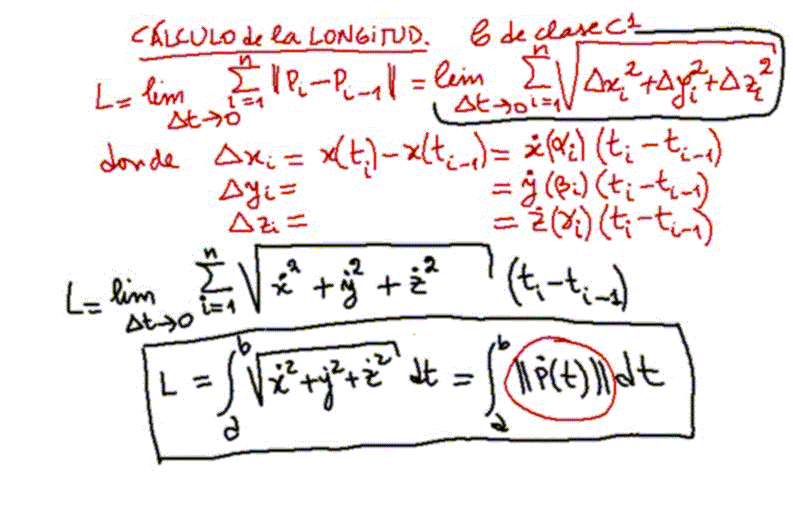 CÁLCULO de la LONGITUD. C de clase C¹
L = lim_{Δt→0} ∑_{i=1}^{n} ‖P_i − P_{i−1}‖ = lim_{Δt→0} ∑_{i=1}^{n} √(Δx_i² + Δy_i² + Δz_i²)
donde Δx_i = x(t_i) − x(t_{i−1}) = ẋ(α_i) (t_i − t_{i−1})
Δy_i = = ẏ(β_i) (t_i − t_{i−1})
Δz_i = = ż(γ_i) (t_i − t_{i−1})
L = lim_{Δt→0} ∑_{i=1}^{n} √(ẋ² + ẏ² + ż²) (t_i − t_{i−1})
L = ∫_a^b √(ẋ² + ẏ² + ż²) dt = ∫_a^b ‖Ṗ(t)‖ dt